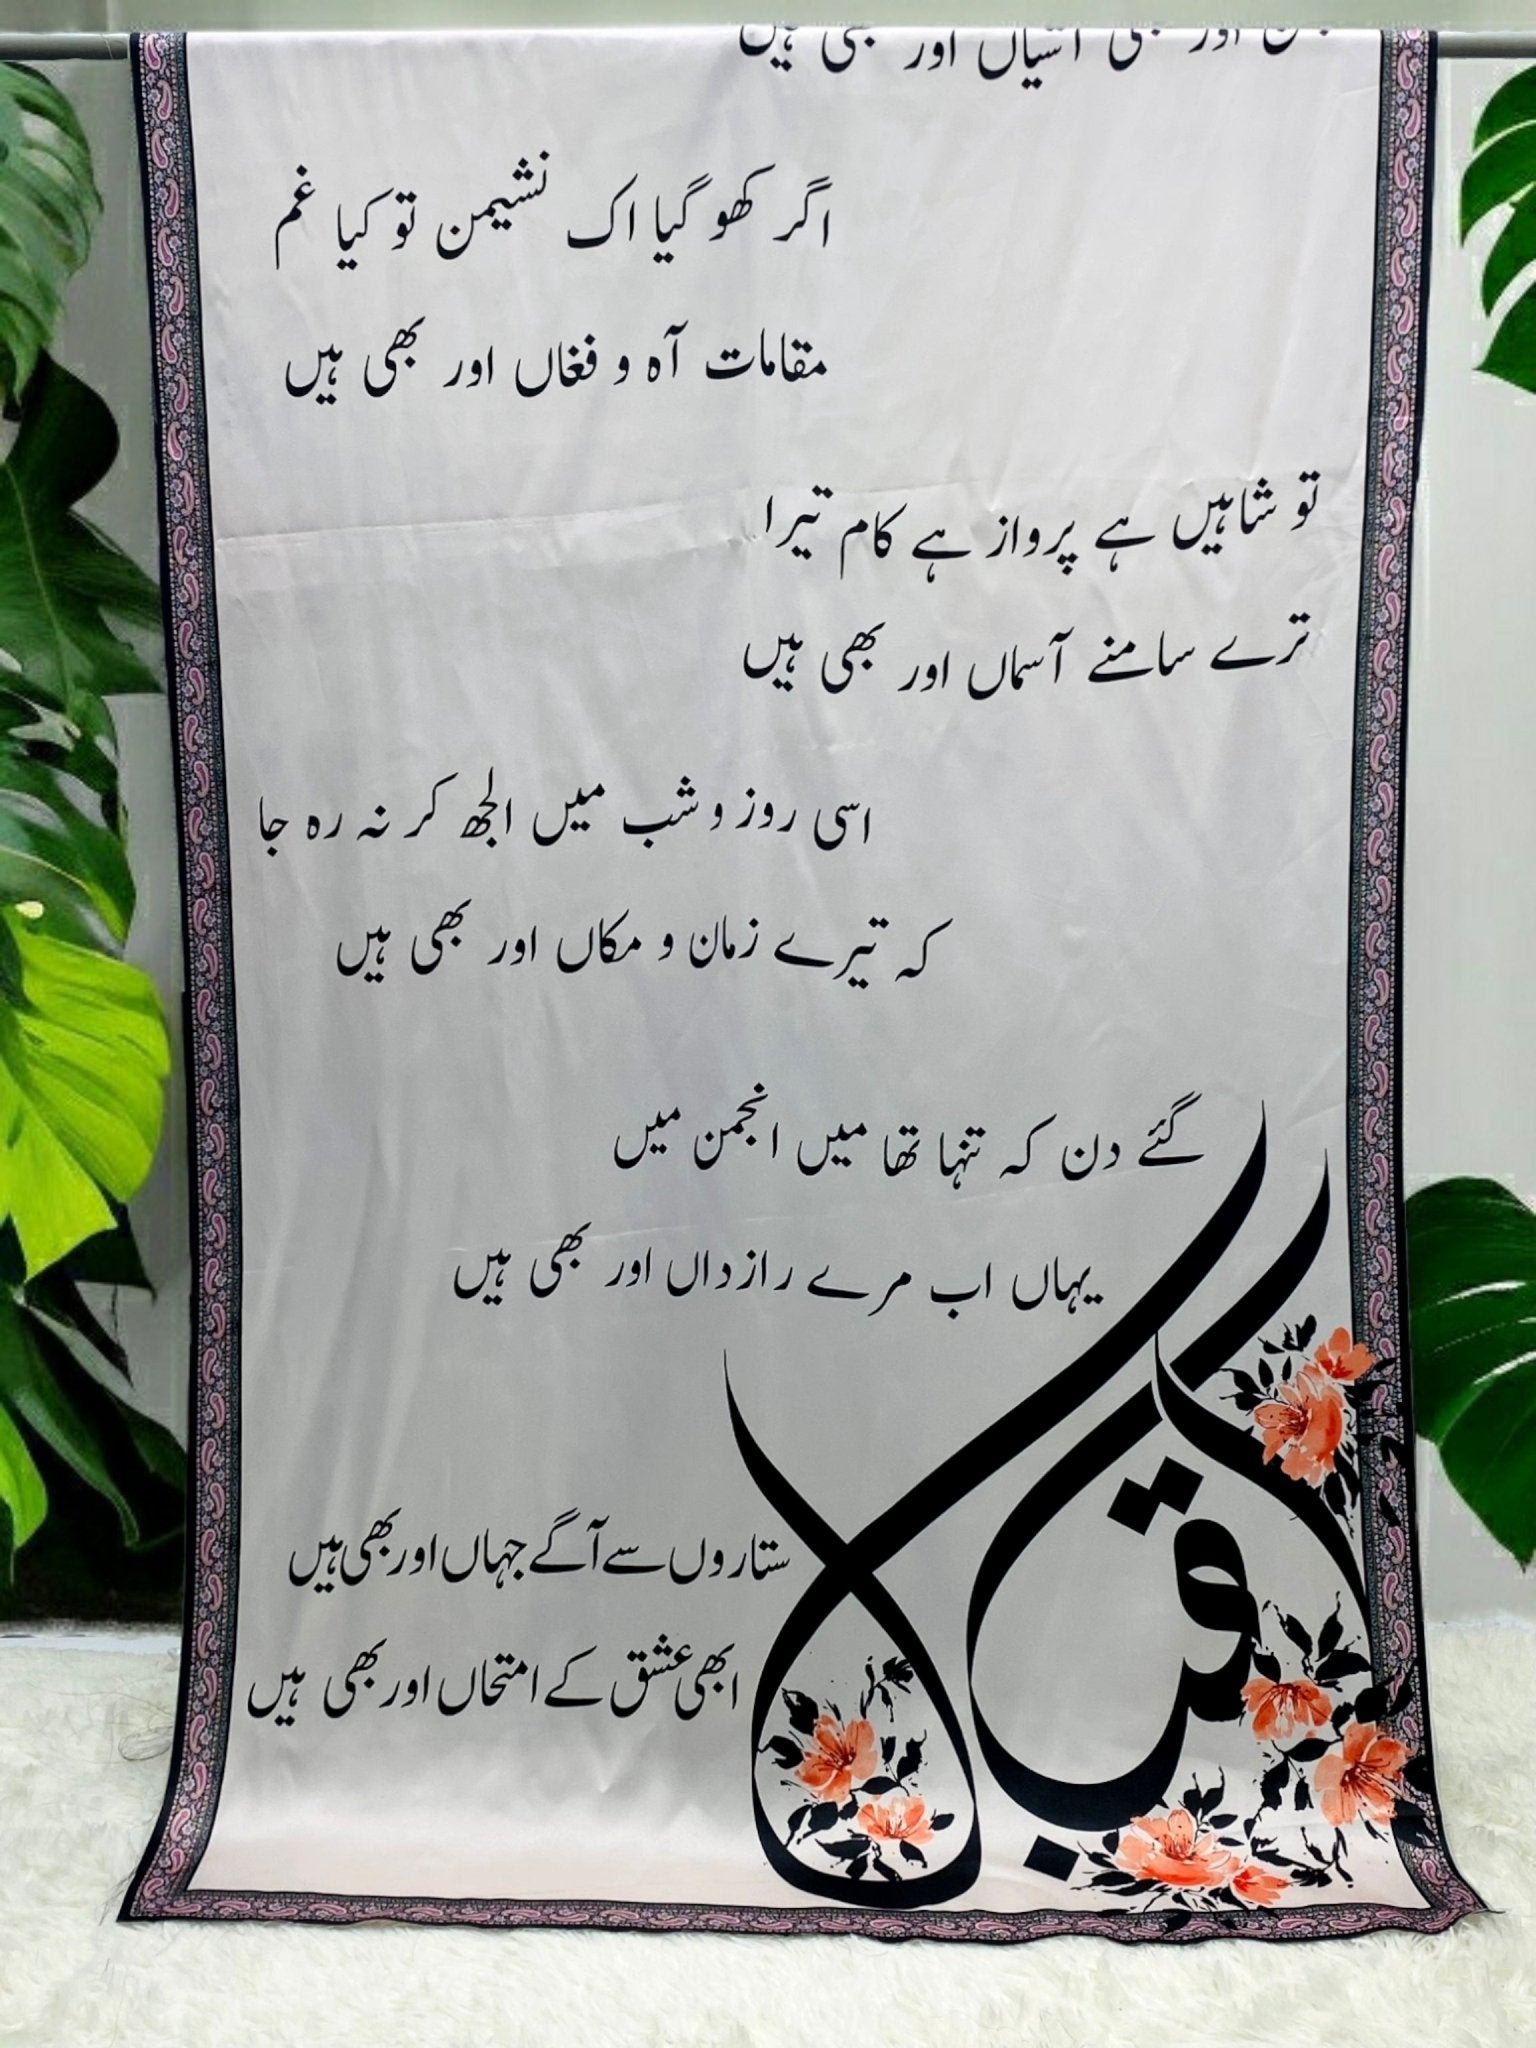 چمن اور بھی آشیاں اور بھی ہیں
اگر کھو گیا اک نشیمن تو کیا غم
مقامات آہ و فغاں اور بھی ہیں
تو شاہیں ہے پرواز ہے کام تیرا
ترے سامنے آسماں اور بھی ہیں
اسی روز و شب میں الجھ کر نہ رہ جا
کہ تیرے زمان و مکاں اور بھی ہیں
گئے دن کہ تنہا تھا میں انجمن میں
یہاں اب مرے رازداں اور بھی ہیں
ستاروں سے آگے جہاں اور بھی ہیں
ابھی عشق کے امتحاں اور بھی ہیں
اقبال